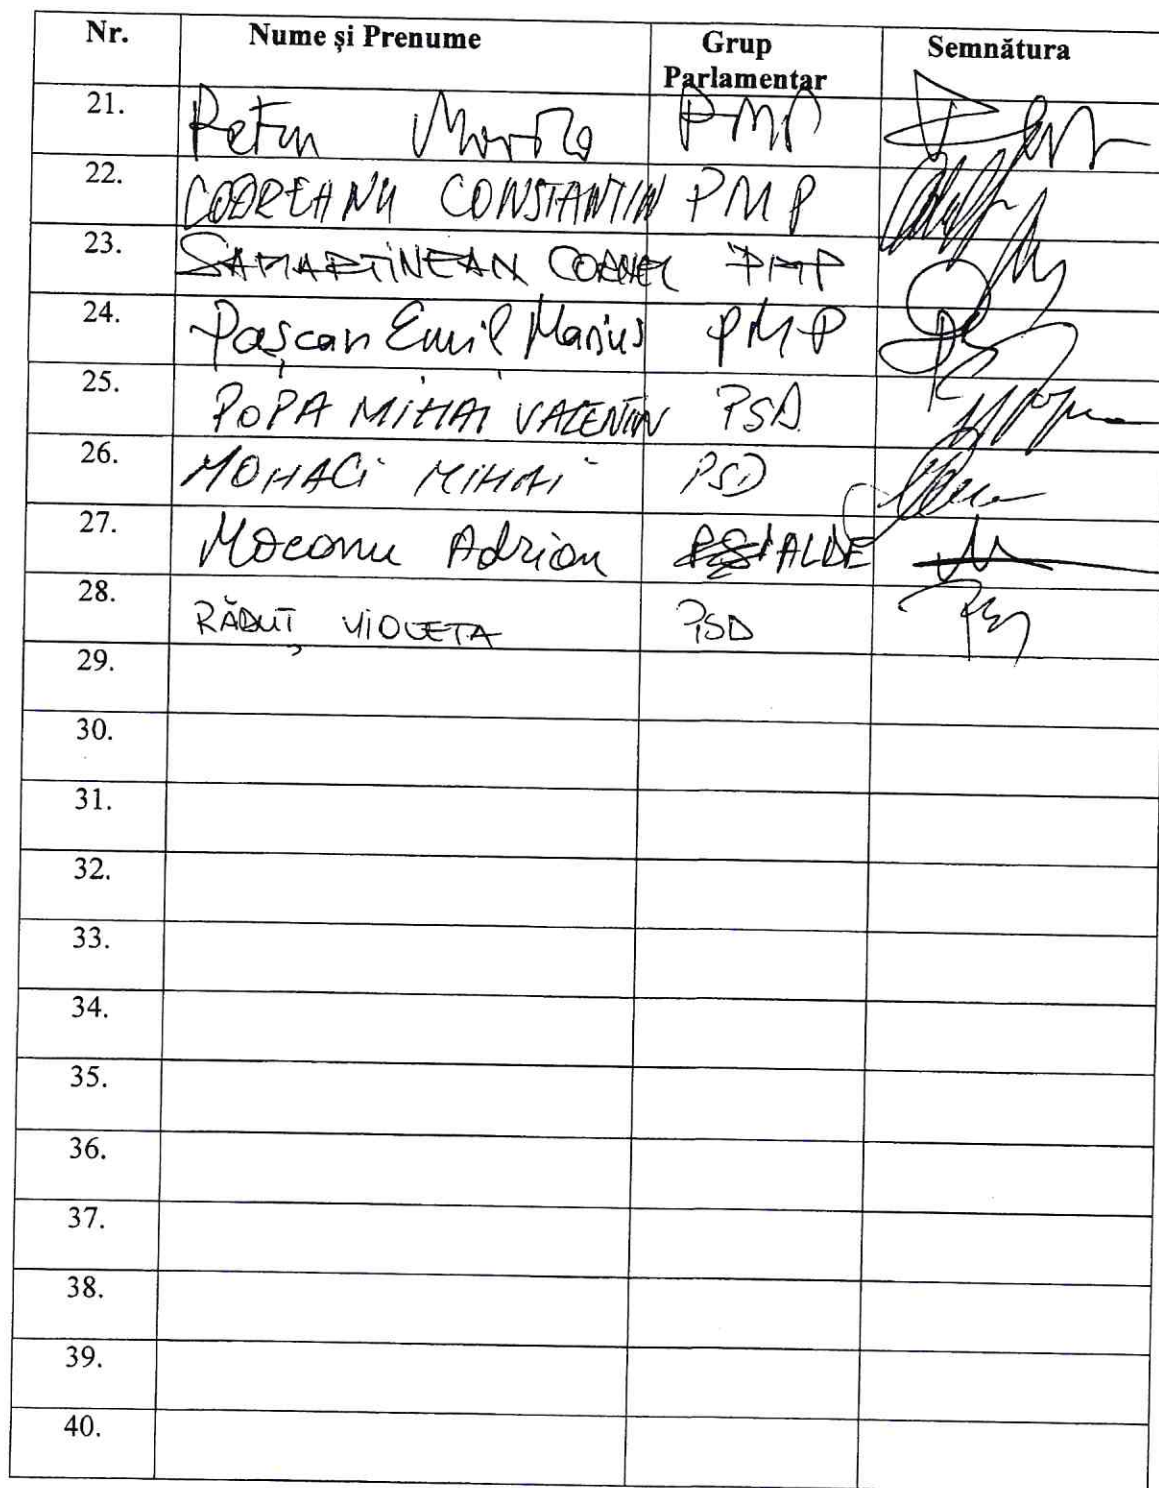 Nr. Nume și Prenume Grup Parlamentar Semnătura
21. Petru Movilă PMP
22. CODREANU CONSTANTIN PMP
23. SAMARTINEAN CORNEL PMP
24. Pașcan Emil Marius PMP
25. POPA MIHAI VALENTIN PSD
26. MOHACI MIHAI PSD
27. Mocanu Adrian ALDE
28. RĂDUȚ VIOLETA PSD
29.
30.
31.
32.
33.
34.
35.
36.
37.
38.
39.
40.